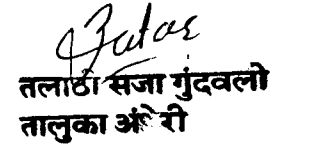 तलाठी सजा गुंदवली
तालुका अंधेरी